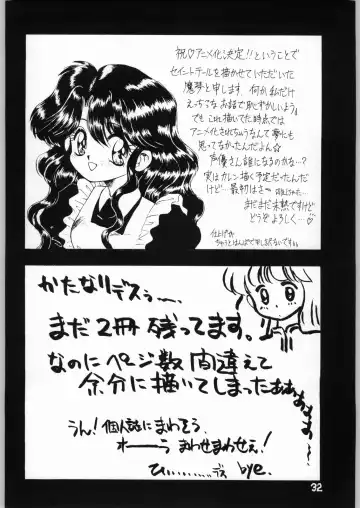 祝♡アニメ化決定!!ということで
セイントテールを描かせていただいた
鷹夢と申します。何か私だけ
えっちなお話で恥ずかしいよう
でもこれ描いてた時点では
アニメ化されちゃうなんて夢にも
思ってなかったんだよん☆
声優さん誰になるのかな…?
実はカレン描く予定だったんだ
けど…最初はさー
まだまだ未熟ですけど
どうぞよろしく…♡
かたなりデスぅー、
まだ2冊残ってます。
なのにページ数間違えて
余分に描いてしまったああぁぁぁぁぁ
うん!個人誌にまわそう
オーーう まわせまわせぇ!
ひぃ………デス bye.
32